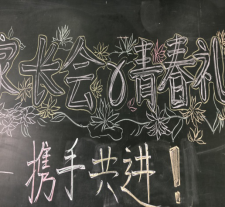 家长会 青春礼
一携手共进！